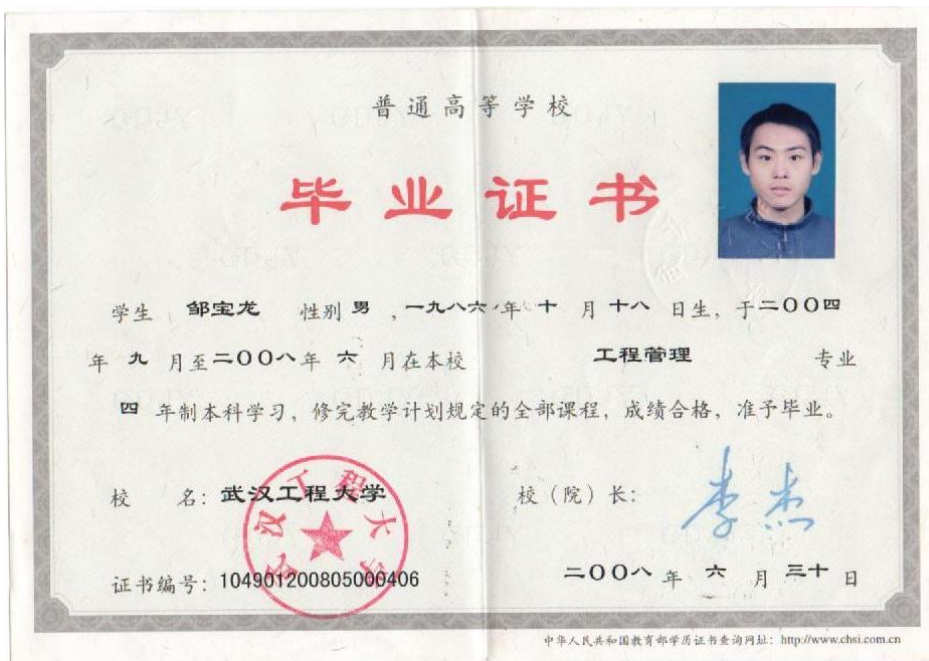 普通高等学校
毕业证书
学生 邹宝龙 性别 男 ，一九八六 年 十 月 十八 日生，于二〇〇四
年 九 月至二〇〇八年 六 月在本校 工程管理 专业
四 年制本科学习，修完教学计划规定的全部课程，成绩合格，准予毕业。
校 名：武汉工程大学 校（院）长：李杰
武汉工程大学
证书编号：104901200805000406 二〇〇八 年 六 月 三十 日
中华人民共和国教育部学历证书查询网址：http://www.chsi.com.cn